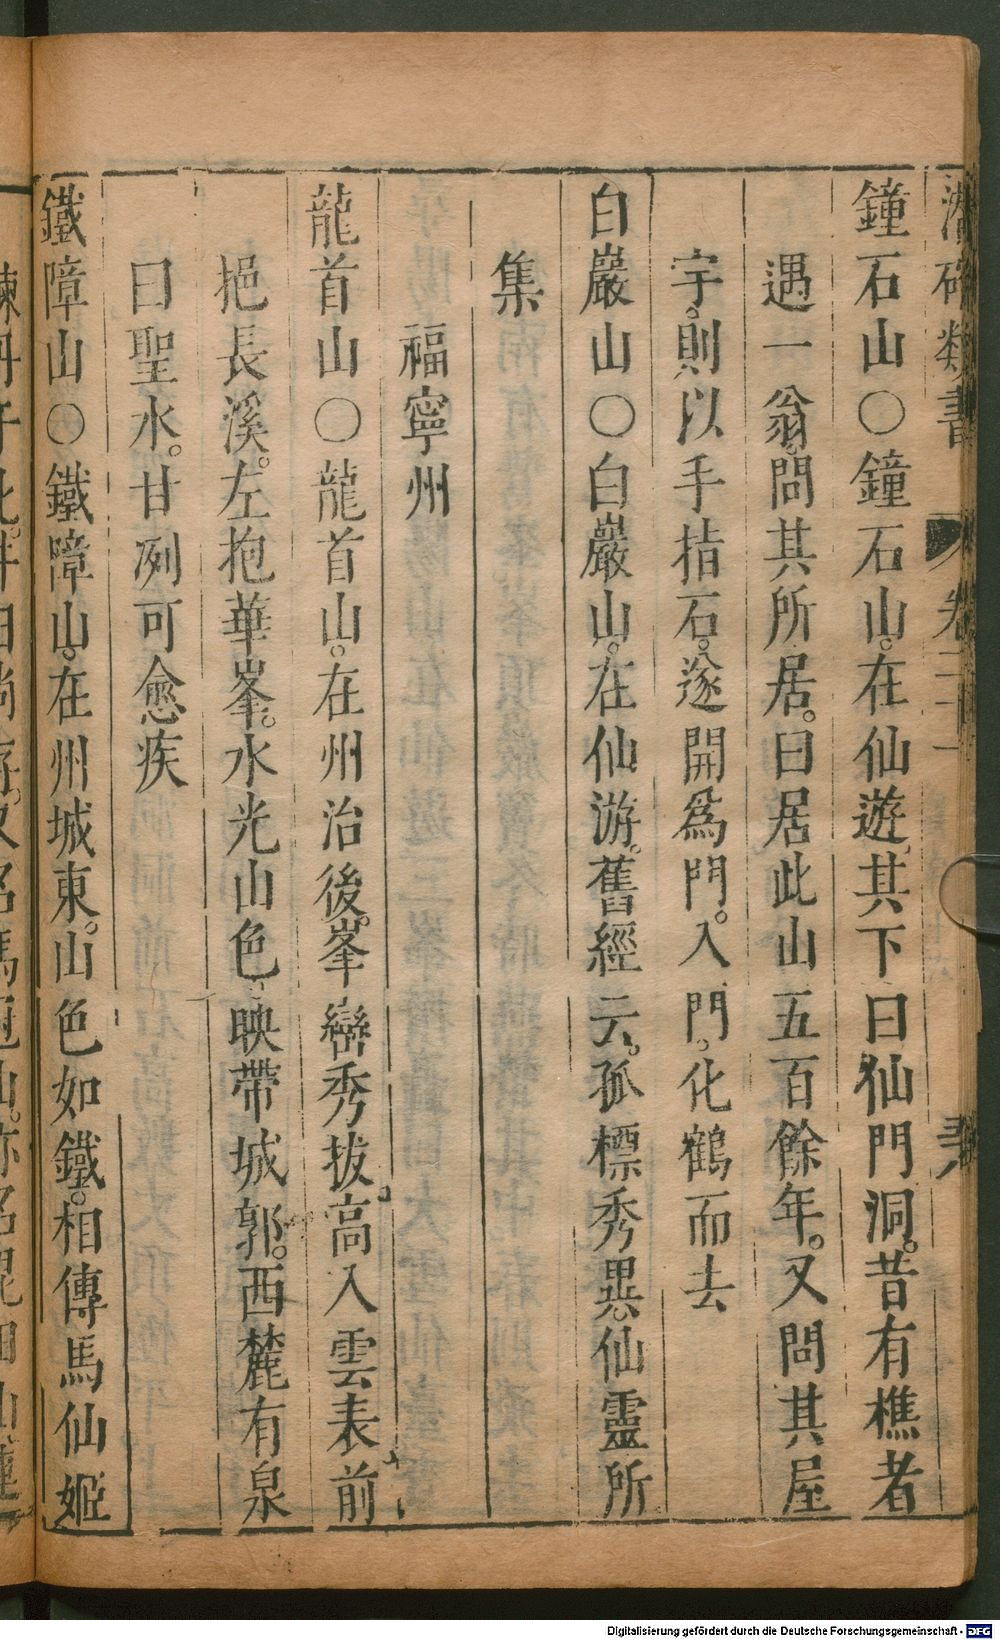 潛確類書 卷二十一
鐘石山○鐘石山。在仙遊。其下曰仙門洞。昔有樵者
遇一翁。問其所居。曰居此山五百餘年。又問其屋
宇。則以手指石。遂開爲門。入門。化鶴而去
白巖山○白巖山。在仙游。舊經云。孤標秀異。仙靈所
集
福寧州
龍首山○龍首山。在州治後。峯巒秀拔。高入雲表前
挹長溪。左抱華峯。水光山色。映帶城郭。西麓有泉
曰聖水。甘冽可愈疾
鐵障山○鐵障山。在州城東。山色如鐵。相傳馬仙姬
Digitalisierung gefördert durch die Deutsche Forschungsgemeinschaft - DFG